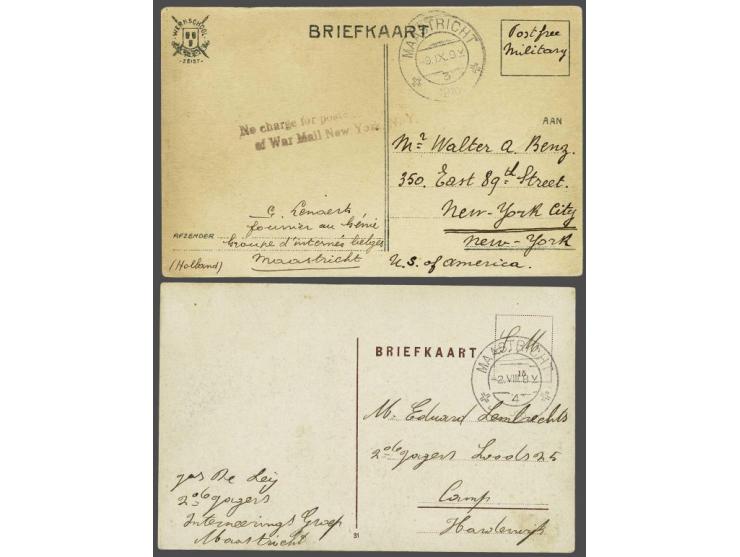 WERKSCHOOL
ZEIST
BRIEFKAART
MAASTRICHT
3
Postfree
Military
No charge for posta
of War Mail New York, N.Y.
AAN
Mr Walter A. Benz.
350. East 89th Street.
New-York City
New-York
U.S. of America.
G. Lenaerts
fourrier au Génie
AFZENDER
Groupe d'internés belges
(Holland)
Maastricht
S.M.
BRIEFKAART
MAASTRICHT
-2.VIII.8.V
4
M. Eduard Lembrechts
2de Jagers Loods 25
Camp
Harderwijk
Jos De Leij
2de Jagers
Interneerings Groep
Maastricht
31